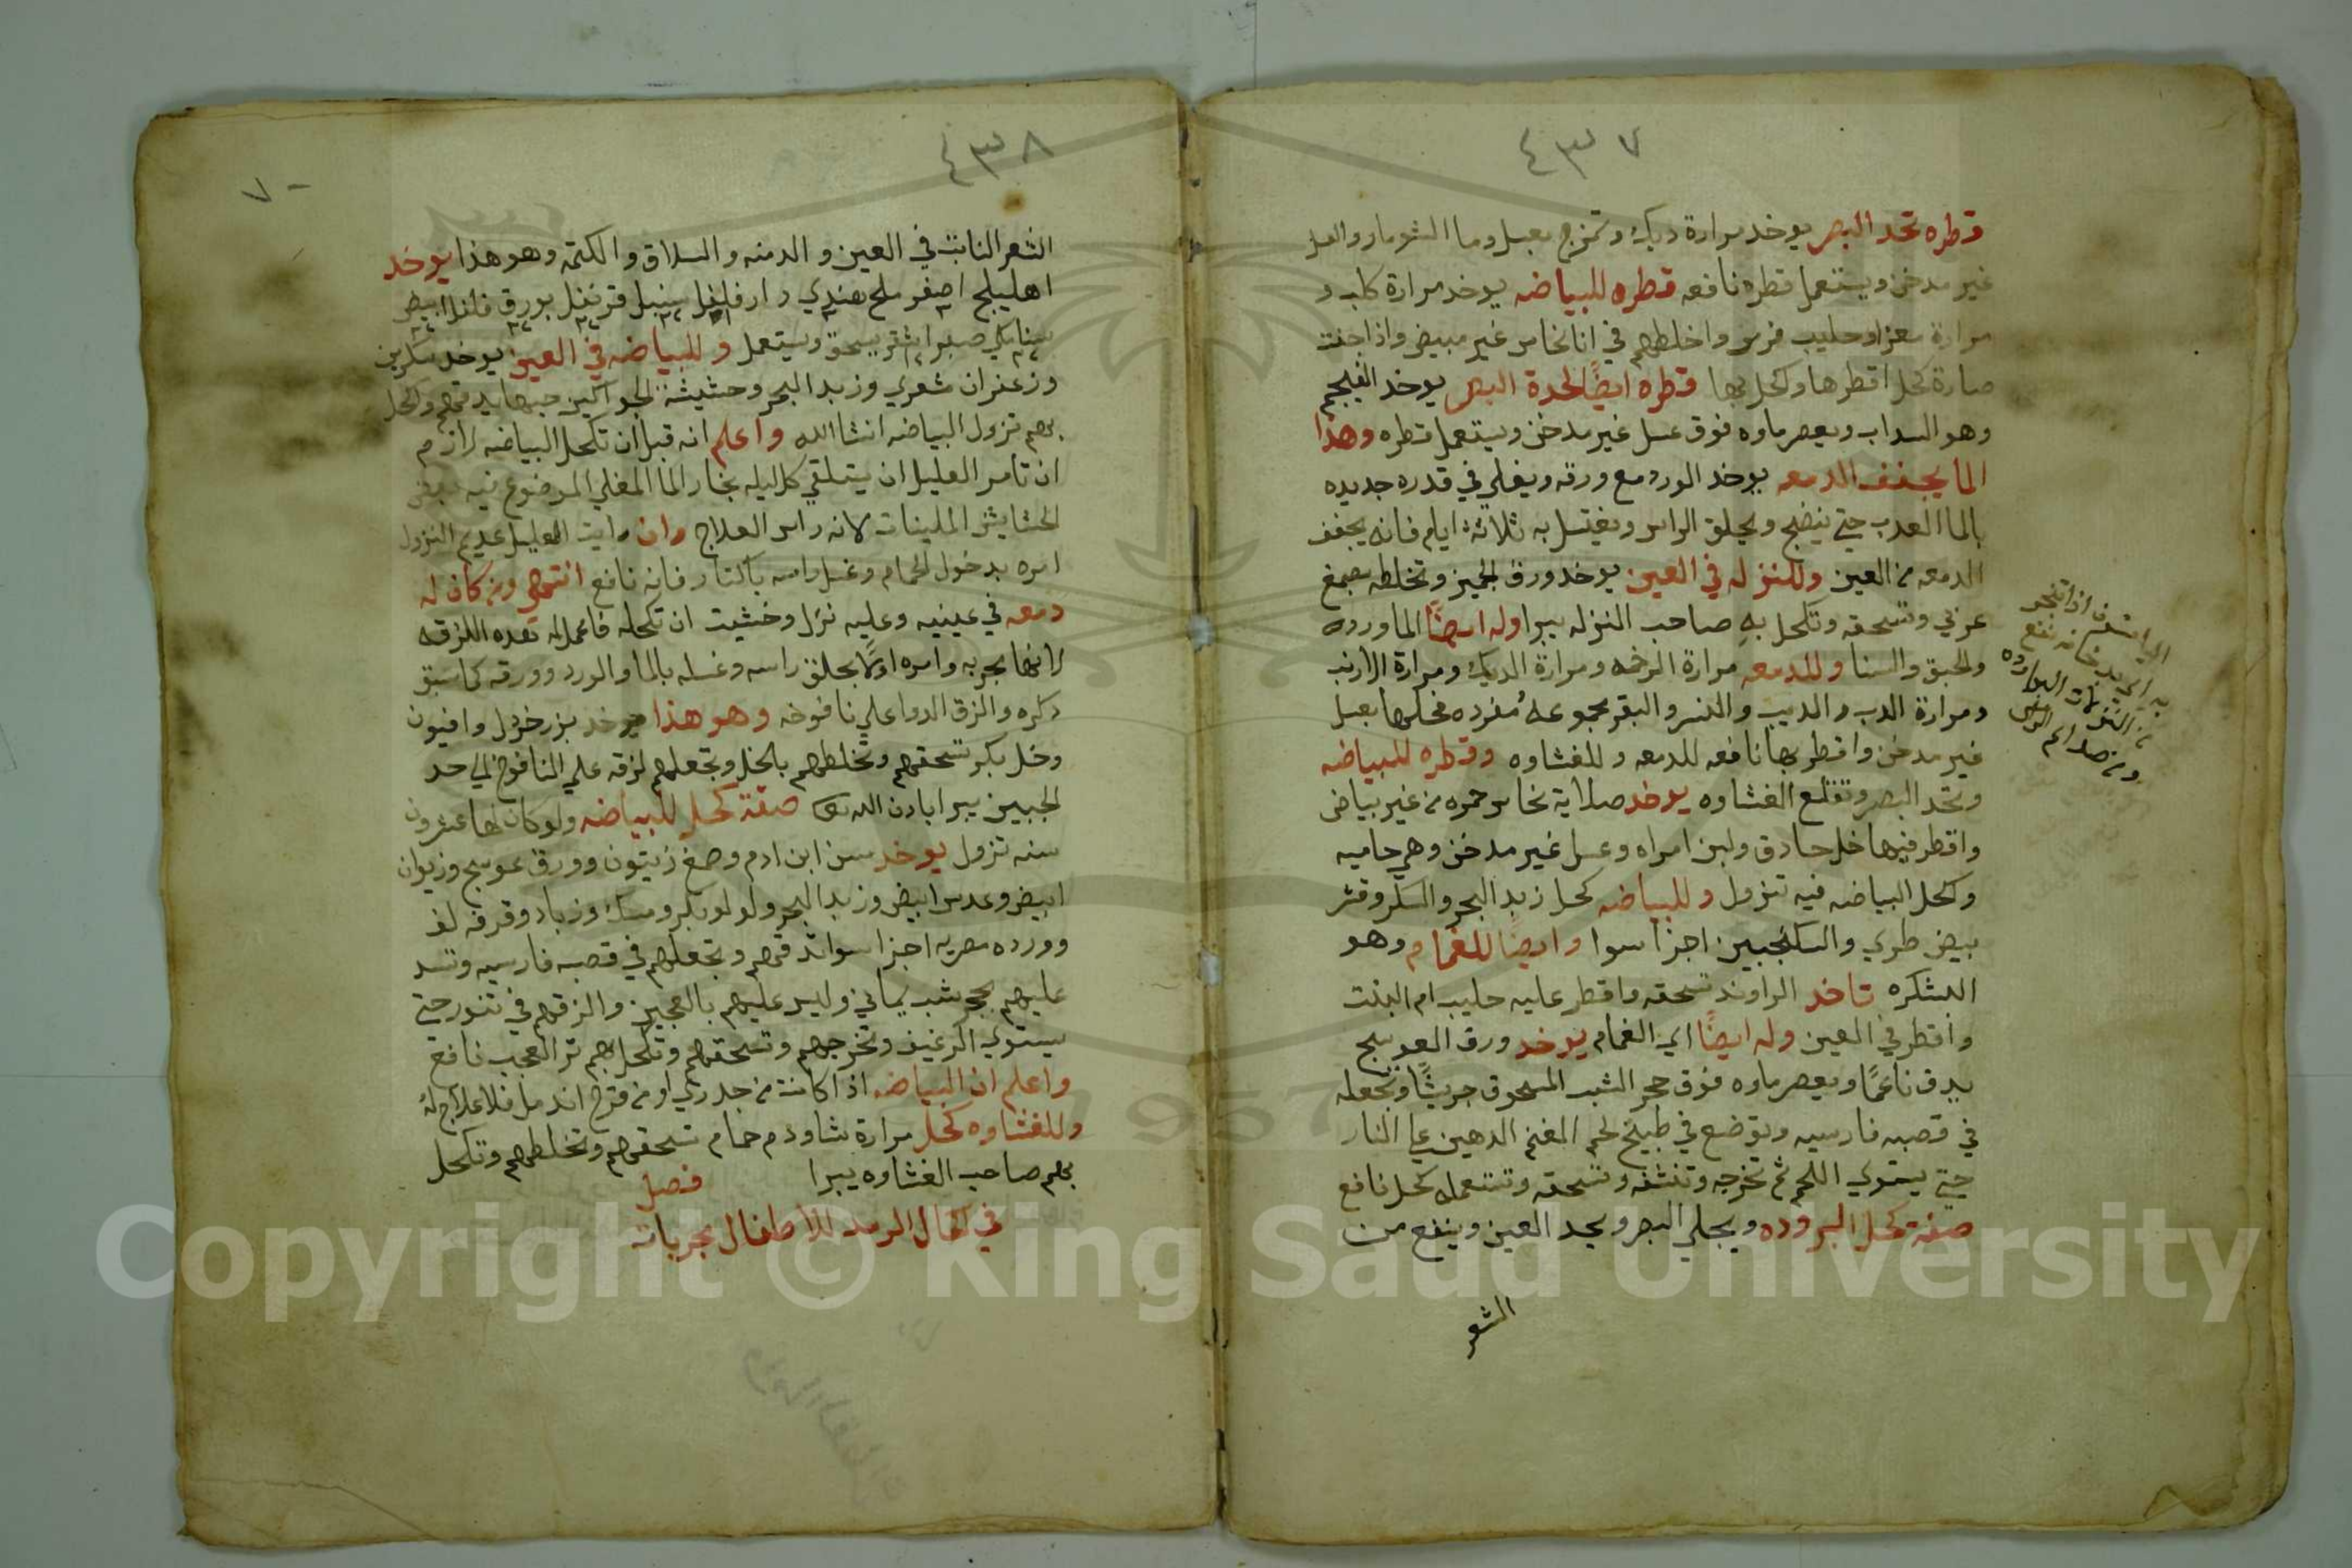 ٤٣٧
قطره تحد البصر يوخد مرارة ديك وتمزج بعسل وما الشومار والعسل
غير مدخن ويستعمل قطره نافعه قطره للبياضه يوخد مرارة كلب و
مرارة معزا وحليب فرس واخلطهم في انا نحاس غير مبيض واذا جفت
صارة كحل اقطرها وكحل بها قطره ايضًا لحدة البصر يوخد الفيجم
وهو السداب ويعصر ماوه فوق عسل غير مدخن ويستعمل قطره وهذا
الما يجفف الدمعه يوخد الورد مع ورقه ويغلي في قدره جديده
بالما العدب حتي ينضج ويحلق الراس ويغتسل به ثلاثة ايام فانه يجفف
الدمعه من العين وللنزله في العين يوخد ورق الجميز وتخلطه بصمغ
عربي وتسحقه وتكحل به صاحب النزله يبرا وله ايضًا الماورده
والحبق والسنا وللدمعه مرارة الرخمه ومرارة الديك ومرارة الارنب
ومرارة الدب والديب والنسر والبقر مجموعه او مفرده فحكها بعسل
غير مدخن واقطر بها نافعه للدمعه وللغشاوه وقطره للبياضه
وتحد البصر وتقلع الغشاوه يوخد صلاية نحاس حمره من غير بياض
واقطر فيها خل حادق ولبن امراه وعسل غير مدخن وهي حاميه
وكحل البياضه فيه تنزول وللبياضه كحل زبد البحر والسكر وقشر
بيض طري والسكنجبين اجزا سوا وايضًا للغمام وهو
العشكره تاخد الراوند تسحقه واقطر عليه حليب ام البنت
واقطر في العين وله ايضًا اي الغمام يوخد ورق العوسج
يدق ناعمًا ويعصر ماوه فوق حجر الشب المسحوق جريشًا وتجعله
في قصبه فارسيه وتوضع في طبيخ لحم المغنم الدهين علي النار
حتي يستوي اللحم ثم تخرجه وتنشفه وتسحقه وتستعمله كحل نافع
صفة كحل البروده ويجلي البصر ويحد العين وينفع من
الشعر
اذا تبخر
به
من النزلات البارده
ومن صداع الراس
٤٣٨
٧٠
الشعر النابت في العين والدمنه والسلاق والكتمه وهو هذا يوخد
اهليلج اصفر ملح هندي دار فلفل سنبل قرنفل بورق فلفل ابيض
سنا مكي صبر اشقر يسحق ويستعمل وللبياضه في العين يوخد
وزعفران شعري وزبد البحر وحشيشة تدقهم وكحل
بهم تزول البياضه انشاالله واعلم انه قبل ان تكحل البياضه لازم
ان تامر العليل ان يتلقي كل ليله بخار الما المغلي الموضوع فيه بعض
الحشايش الملينات لانه راس العلاج وان رايت العليل عديم النزول
امره بدخول الحمام وغسل راسه باكتار فانه نافع انتهي ومن كان له
دمعه في عينيه وعليه نزل وخشيت ان تكحله فاعمل له هذه اللزقه
لانها مجربه وامره اولًا بحلق راسه وغسله بالما والورد وورقه كما سبق
دكره والزق الدوا علي نافوخه وهو هذا يوخد بزر خردل وافيون
وخل بكر تسحقهم وتخلطهم بالخل وتجعلهم لزقه علي النافوخ الي حد
الجبين يبرا بادن الله تعالي صفة كحل للبياضه ولو كان لها عشرون
سنه تزول يوخد سن ابن ادم وصمغ زيتون وورق عوسج وزيوان
ابيض وعدس ابيض وزبد البحر ولولو بكر ومسك وزباد وقرفه لف
وورده مصريه اجزا سوا تدقهم وتجعلهم في قصبه فارسيه وتسد
عليهم بحجر شب يماني وليس عليهم بالعجين والزقهم في تنور حتي
يستوي الرغيف وتخرجهم وتسحقهم وتكحل بهم تر العجب نافع
واعلم ان البياضه اذا كانت من جدري او من قرح اندمل فلا علاج له
وللغشاوه كحل مرارة شاه ودم حمام تسحقهم وتخلطهم وتكحل
بهم صاحب الغشاوه يبرا فصل
في اكحال الرمد للاطفال مجربات
Copyright © King Saud University
1957